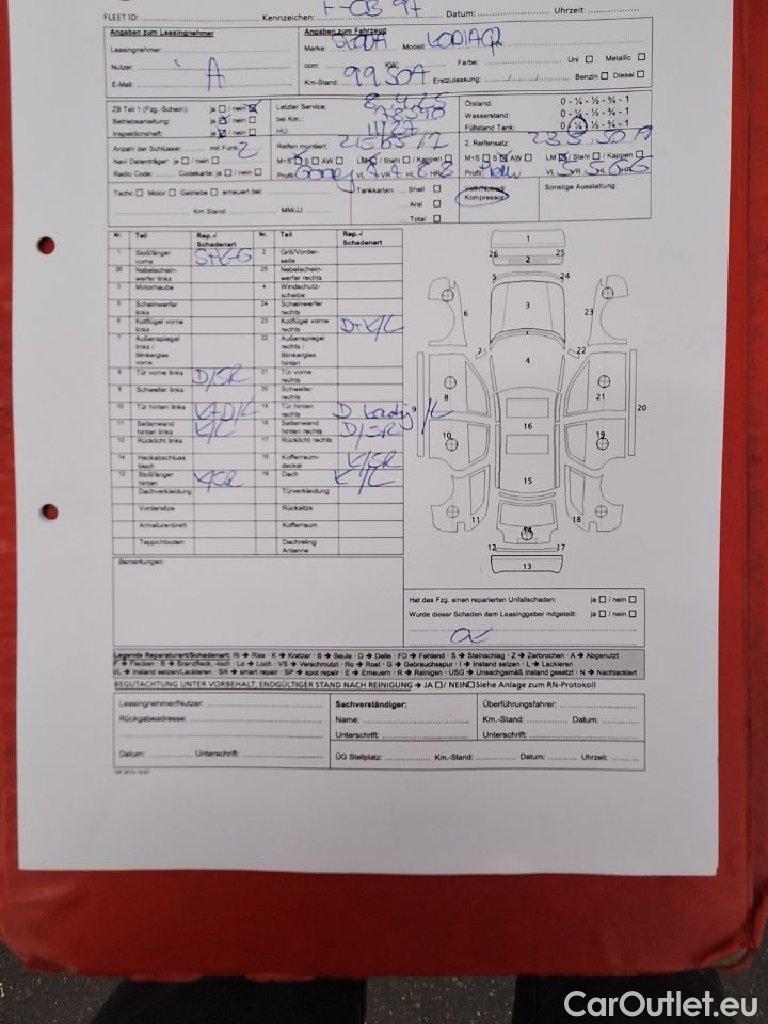 FLEET ID: Kennzeichen: F-CB 97 Datum: Uhrzeit:
Angaben zum Leasingnehmer
Leasingnehmer:
Nutzer: A
E-Mail:
Angaben zum Fahrzeug
Marke SKODA Modell KODIAQ
ccm: KW: Farbe: Uni Metallic
Km-Stand: 99 507 Erstzulassung: Benzin Diesel
ZB Teil 1 (Fzg.-Schein): ja / nein
Betriebsanleitung: ja / nein
Inspektionsheft: ja / nein
Letzter Service:
bei Km.:
HU: 11/27
Ölstand: 0 - ¼ - ½ - ¾ - 1
Wasserstand: 0 - ¼ - ½ - ¾ - 1
Füllstand Tank: 0 - ¼ - ½ - ¾ - 1
Anzahl der Schlüssel: mit Funk 2
Navi Datenträger: ja / nein
Radio Code: Codekarte: ja / nein
Reifen montiert:
M+S S AW LM / Stahl / Kappen
Profil VL VR HL HR
2. Reifensatz:
M+S S AW LM / Stahl / Kappen
Profil VL VR HL HR
Tacho Motor Getriebe erneuert bei
Km Stand MM/JJ
Tankkarten: Shell
Aral
Total
Kompressor
Sonstige Ausstattung:
Nr. Teil Rep.-/ Schadenart Nr. Teil Rep.-/ Schadenart
1 Stoßfänger vorne 2 Grill/Vorderseite
26 Nebelscheinwerfer links 25 Nebelscheinwerfer rechts
3 Motorhaube 4 Windschutzscheibe
5 Scheinwerfer links 24 Scheinwerfer rechts
6 Kotflügel vorne links 23 Kotflügel vorne rechts D+K/L
7 Außenspiegel links / Blinkerglas vorne 22 Außenspiegel rechts / Blinkerglas hinten
8 Tür vorne links D/SR 21 Tür vorne rechts
9 Schweller links 20 Schweller rechts
10 Tür hinten links K+D/L 19 Tür hinten rechts
11 Seitenwand hinten links K/L 18 Seitenwand hinten rechts D/SR
12 Rücklicht links 17 Rücklicht rechts
14 Heckabschlussblech 15 Kofferraumdeckel K/SR
13 Stoßfänger hinten K/SR 16 Dach K/L
Dachverkleidung Türverkleidung
Vordersitze Rücksitze
Armaturenbrett Kofferraum
Teppichboden Dachreling Antenne
Bemerkungen
1
26 25
2
5 24
3
6 23
7 22
4
8 21
9 20
10 16 19
15
11 18
14
12 17
13
Hat das Fzg. einen reparierten Unfallschaden: ja / nein
Wurde dieser Schaden dem Leasinggeber mitgeteilt: ja / nein
Legende Reparaturart/Schadenart: Ri → Riss K → Kratzer B → Beule D → Delle FD → Fehlend S → Steinschlag Z → Zerbrochen A → Abgenutzt
F → Flecken B → Brandfleck, -loch Lo → Loch VS → Verschmutzt Ro → Rost G → Gebrauchsspur I → Instand setzen L → Lackieren
I/L → Instand setzen/Lackieren SR → smart repair SP → spot repair E → Erneuern R → Reinigen USG → Unsachgemäß instand gesetzt N → Nachlackiert
BEGUTACHTUNG UNTER VORBEHALT, ENDGÜLTIGER STAND NACH REINIGUNG → JA / NEIN Siehe Anlage zum RN-Protokoll
Leasingnehmer/Nutzer:
Rückgabeadresse:
Datum: Unterschrift:
Sachverständiger:
Name:
Unterschrift:
Überführungsfahrer:
Km.-Stand: Datum:
Unterschrift:
ÜG Stellplatz: Km.-Stand: Datum: Uhrzeit:
CarOutlet.eu